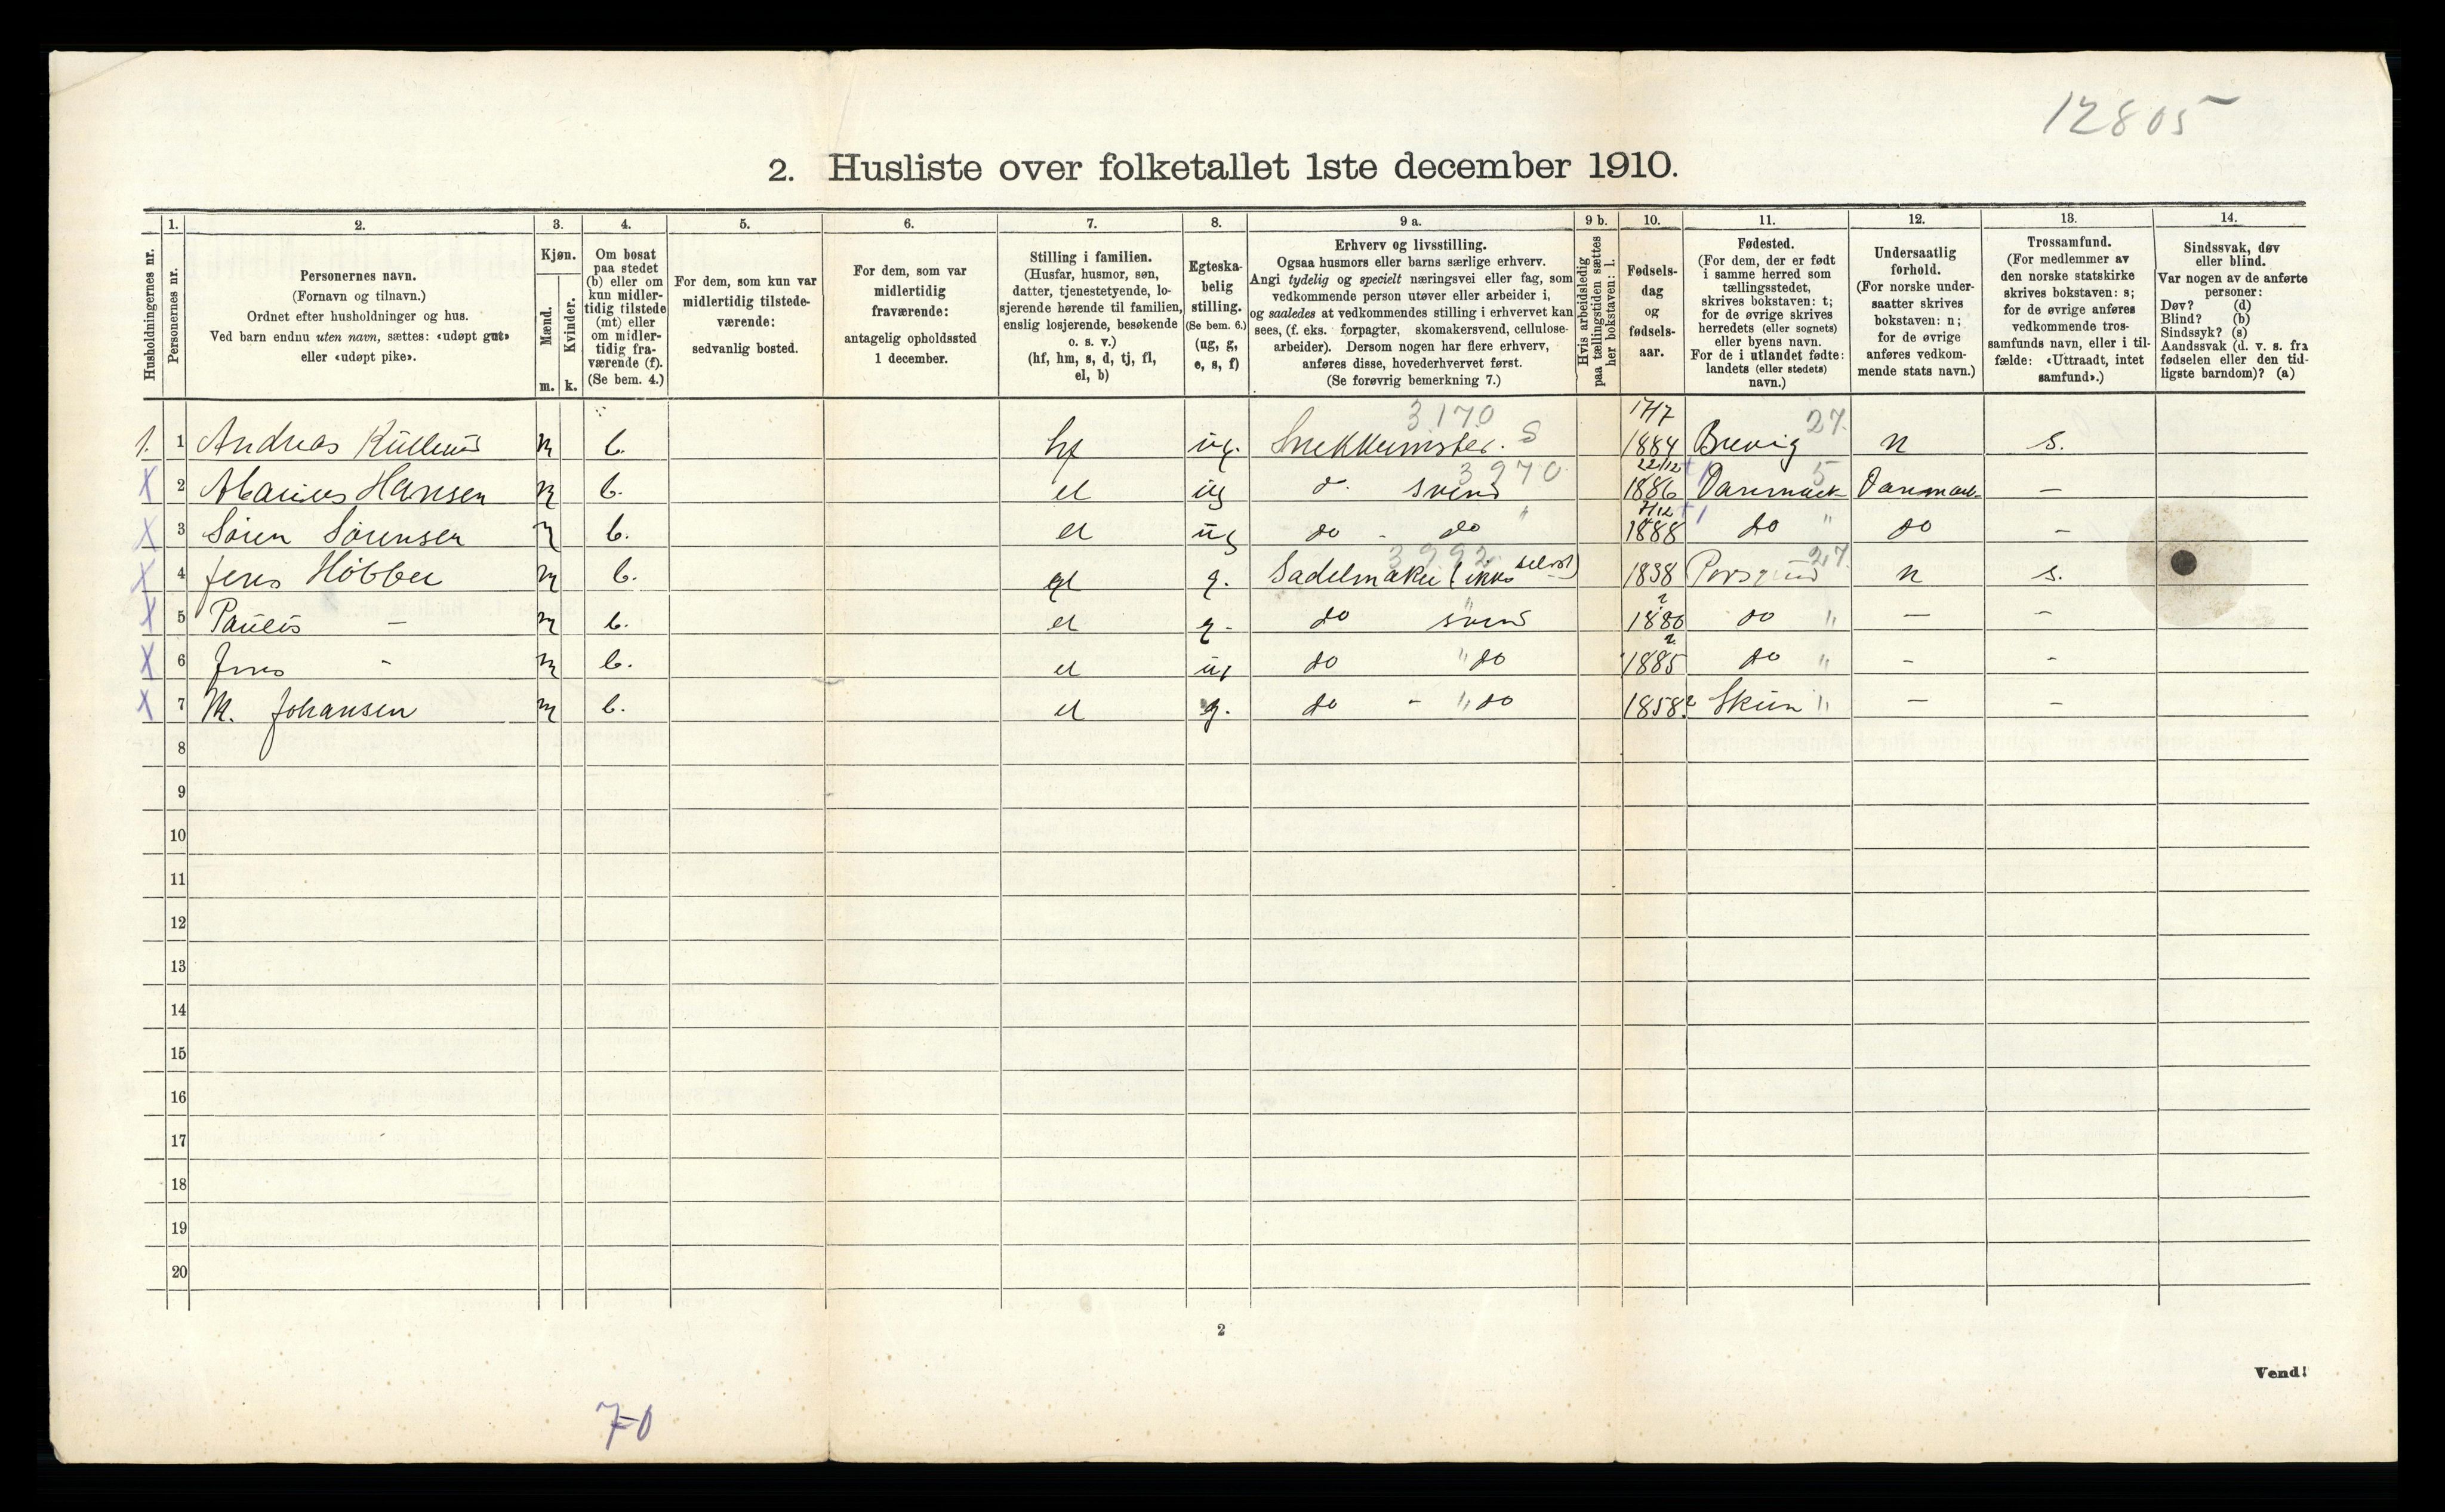 12805
2. Husliste over folketallet 1ste december 1910.
Husholdningernes nr.
1.
Personernes nr.
2.
Personernes navn.
(Fornavn og tilnavn.)
Ordnet efter husholdninger og hus.
Ved barn endnu uten navn, sættes: «udøpt gut»
eller «udøpt pike».
3.
Kjøn.
Mænd.
Kvinder.
m. k.
4.
Om bosat
paa stedet
(b) eller om
kun midler-
tidig tilstede
(mt) eller
om midler-
tidig fra-
værende (f).
(Se bem. 4.)
5.
For dem, som kun var
midlertidig tilstede-
værende:
sedvanlig bosted.
6.
For dem, som var
midlertidig
fraværende:
antagelig opholdssted
1 december.
7.
Stilling i familien.
(Husfar, husmor, søn,
datter, tjenestetyende, lo-
sjerende hørende til familien,
enslig losjerende, besøkende
o. s. v.)
(hf, hm, s, d, tj, fl,
el, b)
8.
Egteska-
belig
stilling.
(Se bem. 6.)
(ug, g,
e, s, f)
9 a.
Erhverv og livsstilling.
Ogsaa husmors eller barns særlige erhverv.
Angi tydelig og specielt næringsvei eller fag, som
vedkommende person utøver eller arbeider i,
og saaledes at vedkommendes stilling i erhvervet kan
sees, (f. eks. forpagter, skomakersvend, cellulose-
arbeider). Dersom nogen har flere erhverv,
anføres disse, hovederhvervet først.
(Se forøvrig bemerkning 7.)
9 b.
Hvis arbeidsledig
paa tællingstiden sættes
her bokstaven: l.
10.
Fødsels-
dag
og
fødsels-
aar.
11.
Fødested.
(For dem, der er født
i samme herred som
tællingsstedet,
skrives bokstaven: t;
for de øvrige skrives
herredets (eller sognets)
eller byens navn.
For de i utlandet fødte:
landets (eller stedets)
navn.)
12.
Undersaatlig
forhold.
(For norske under-
saatter skrives
bokstaven: n;
for de øvrige
anføres vedkom-
mende stats navn.)
13.
Trossamfund.
(For medlemmer av
den norske statskirke
skrives bokstaven: s;
for de øvrige anføres
vedkommende tros-
samfunds navn, eller i til-
fælde: «Uttraadt, intet
samfund».)
14.
Sindssvak, døv
eller blind.
Var nogen av de anførte
personer:
Døv? (d)
Blind? (b)
Sindssyk? (s)
Aandssvak (d. v. s. fra
fødselen eller den tid-
ligste barndom)? (a)
3170 17/7 27.
1. 1 Andreas m b. hf ug. S 1884 Brevig n s.
3970 22/12 5
X 2 Marius Hansen m b. el ug d. svend 1886 Danmark Danmark —
7/12
X 3 Søren Sørensen m b. el ug do - do " 1888 do " do —
3992 27.
X 4 Jens m b. el g. Sadelmaker (ikke selvst) 1838 Porsgrund n s.
X 5 Paulus — m b. el g. do svend 1880 do " — —
X 6 Jens - m b. el ug do " do 1885 do " - -
X 7 M. Johansen m b. el g. do - " do 1858? Skien " — —
8
9
10
11
12
13
14
15
16
17
18
19
20
2
Vend!
70